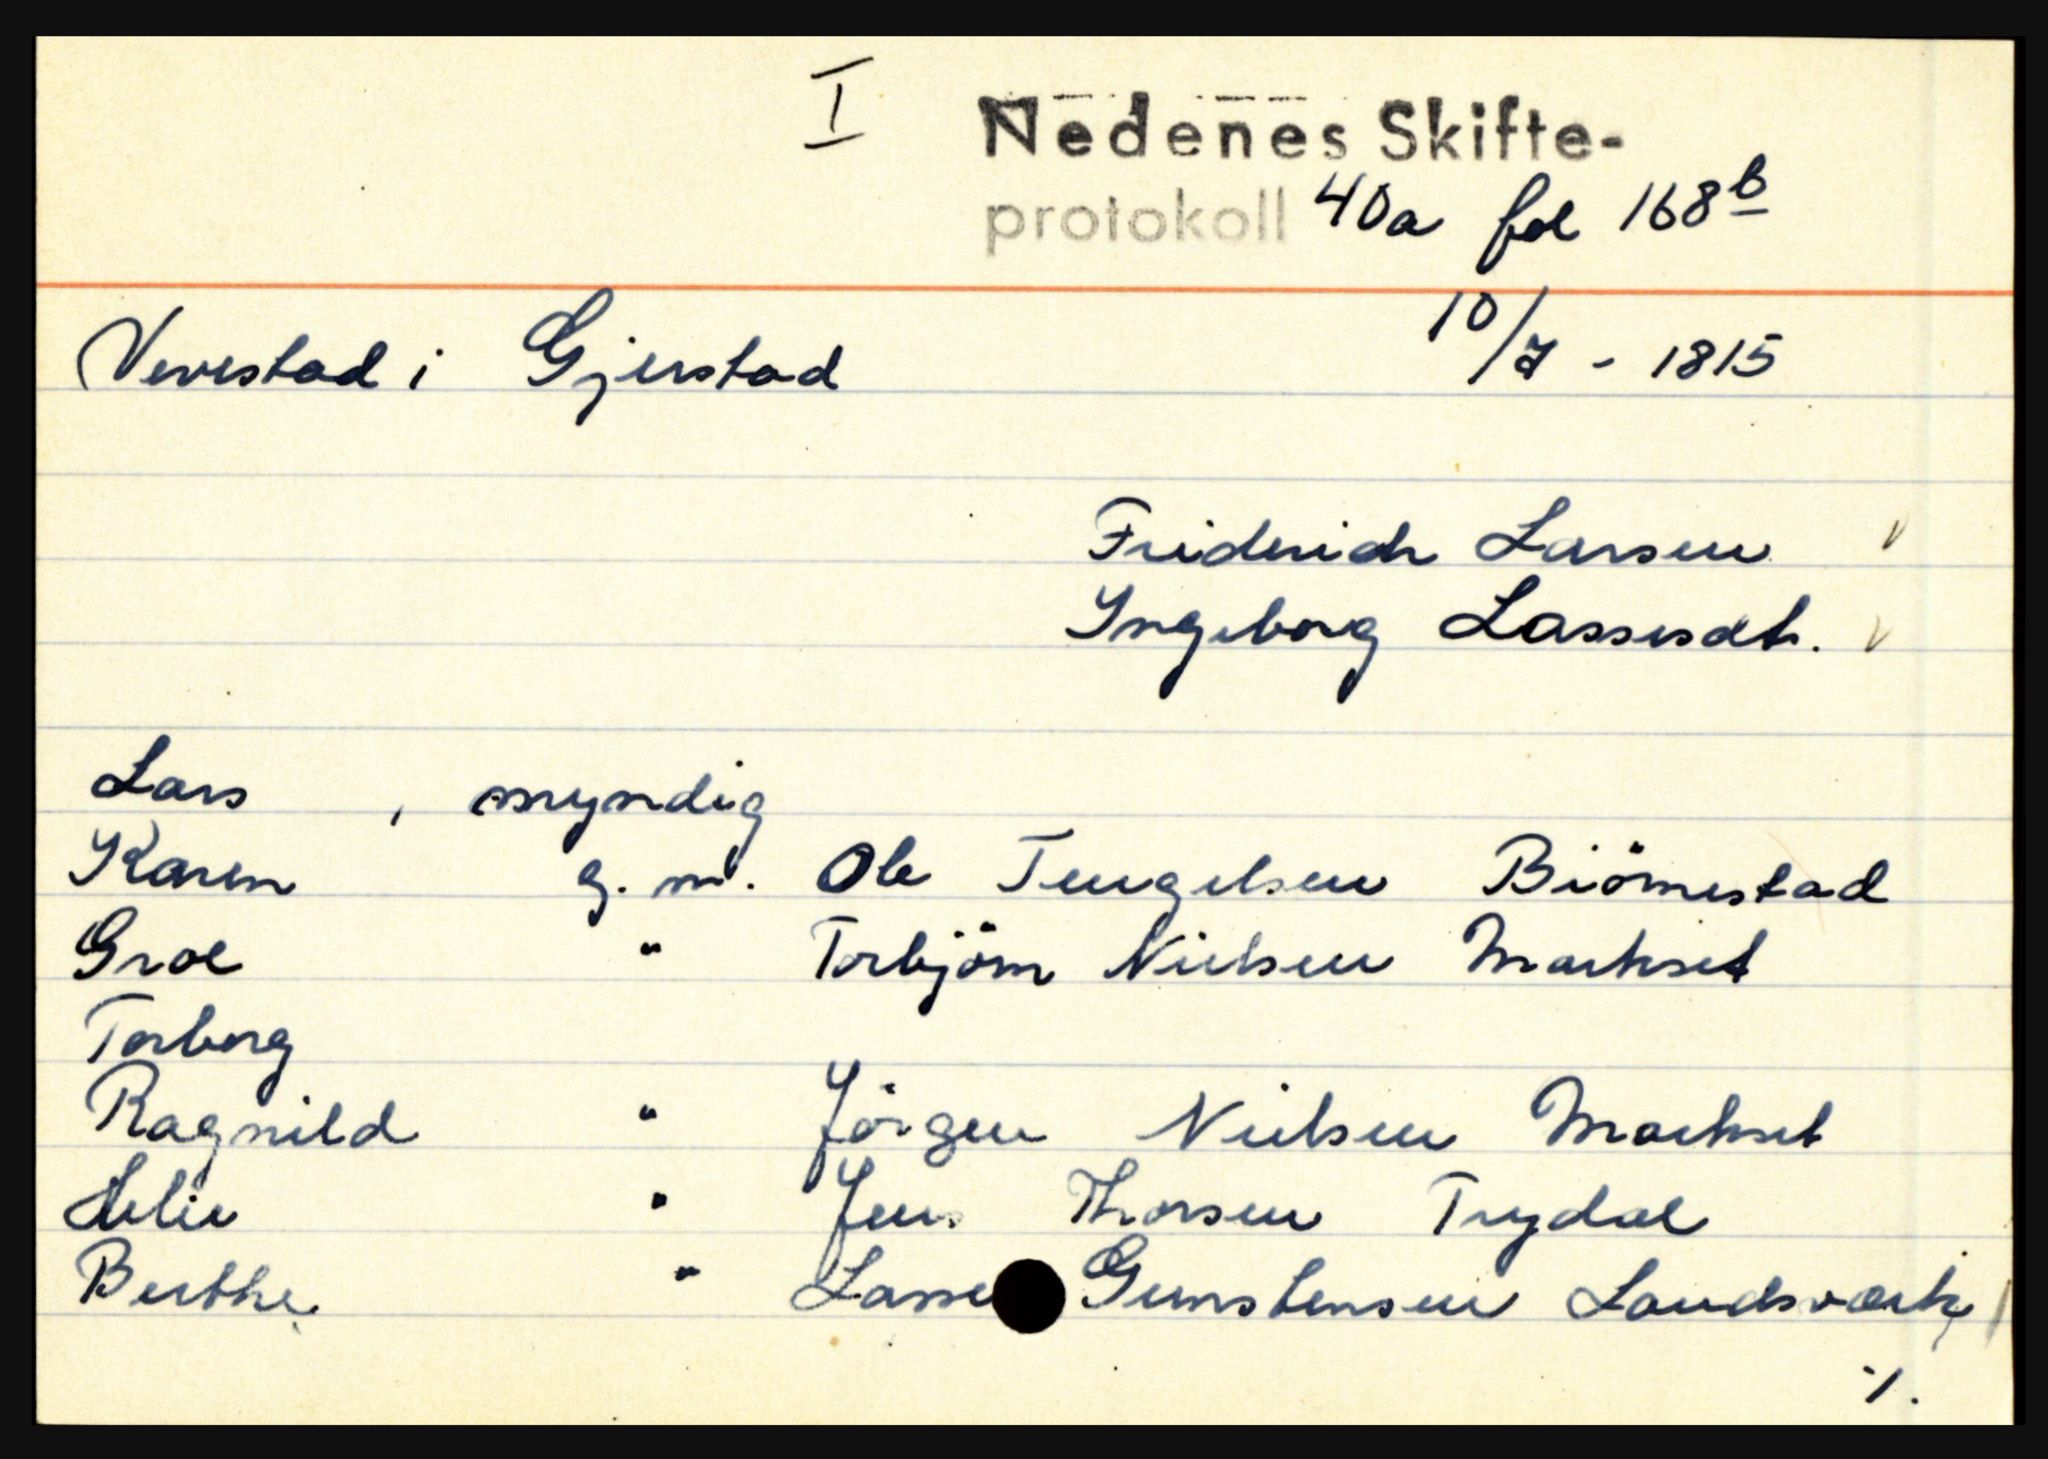 I
Nedenes Skifte-
protokoll 40a fol 168b
10/7 - 1815
Vevestad i Gjerstad
Friderich Larsen v
Ingeborg Lassesdt. v
Lars , myndig
Karen g. m. Ole Tengelsen Biörnestad
Groe " Torbjörn Nielsen Markset
Torborg
Ragnild " Jörgen Nielsen Markset
Helie " Jens Thorsen Trydal
Berthe " Lasse Gunstensen Landsværk
./.